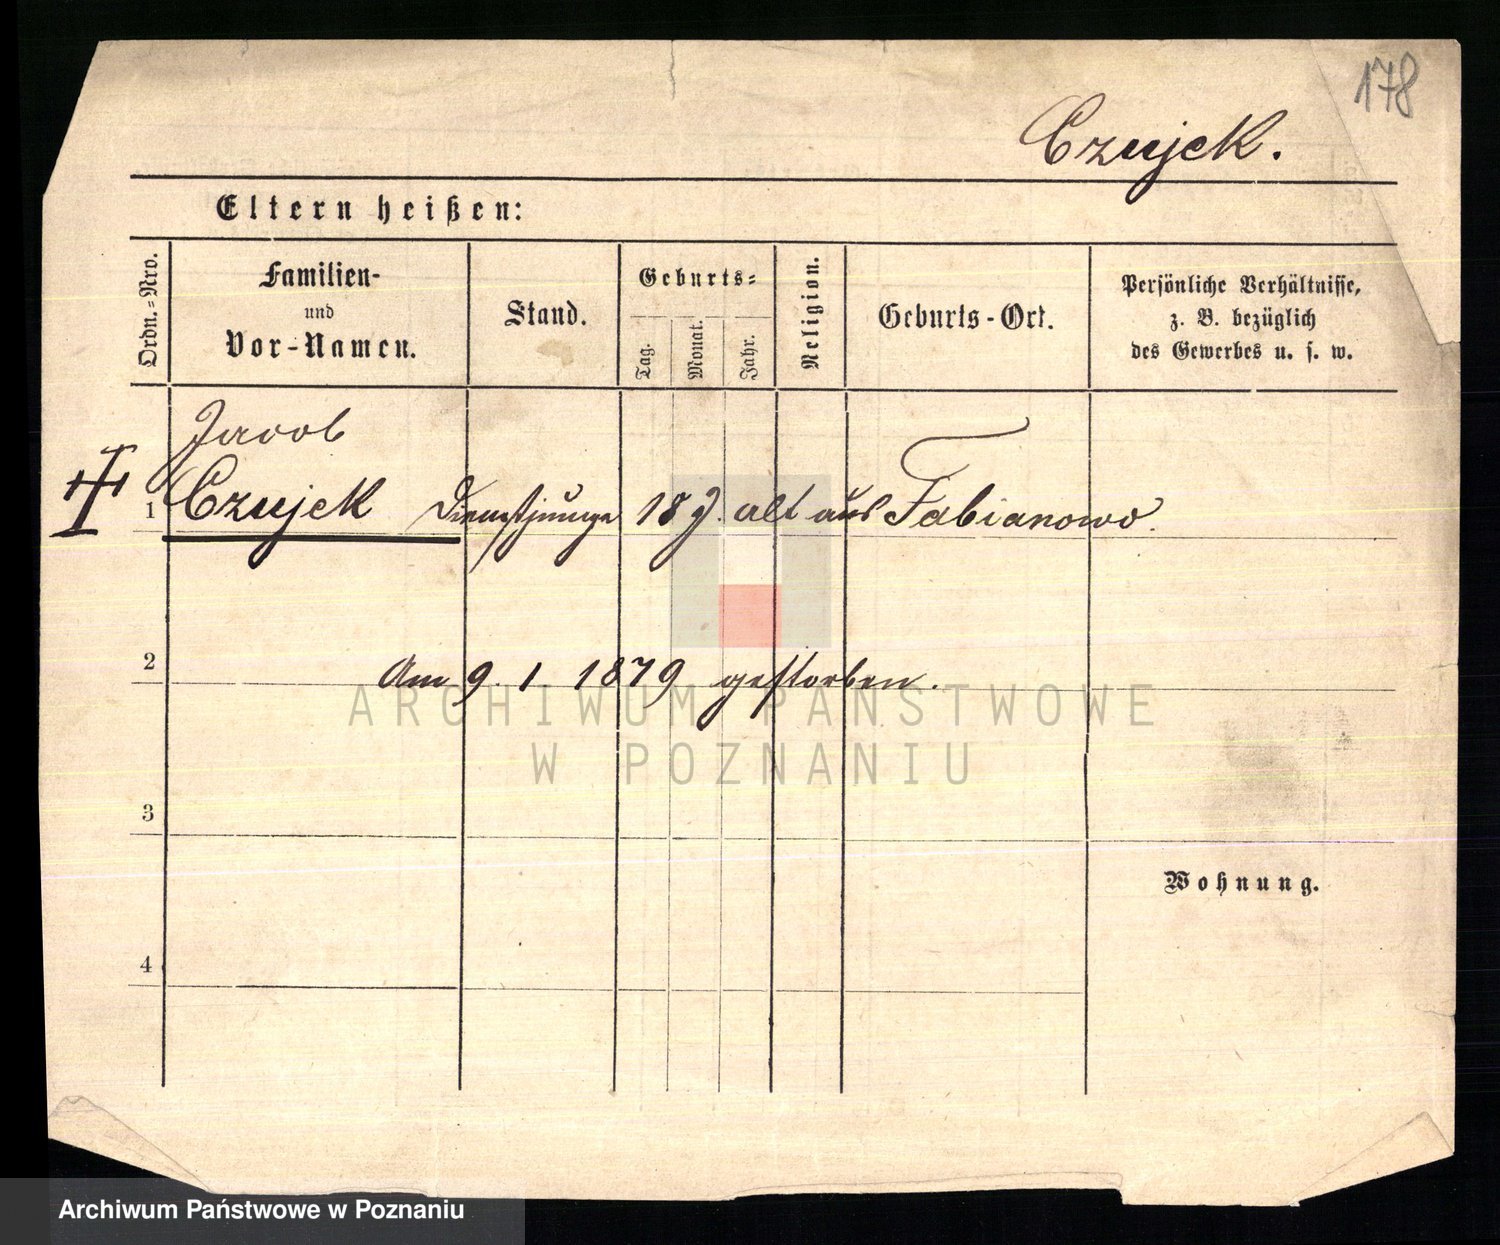 178
Czujek.
Eltern heißen:
Ordn.-Nro.
Familien-
und
Vor-Namen.
Stand.
Geburts-
Tag.
Monat.
Jahr.
Religion.
Geburts-Ort.
Persönliche Verhältnisse,
z. B. bezüglich
des Gewerbes u. s. w.
Jacob
1 Czujek Dienstjunge 18 J. alt aus Fabianowo.
2
Am 9. 1 1879 gestorben.
ARCHIWUM PAŃSTWOWE
W POZNANIU
3
Wohnung.
4
Archiwum Państwowe w Poznaniu